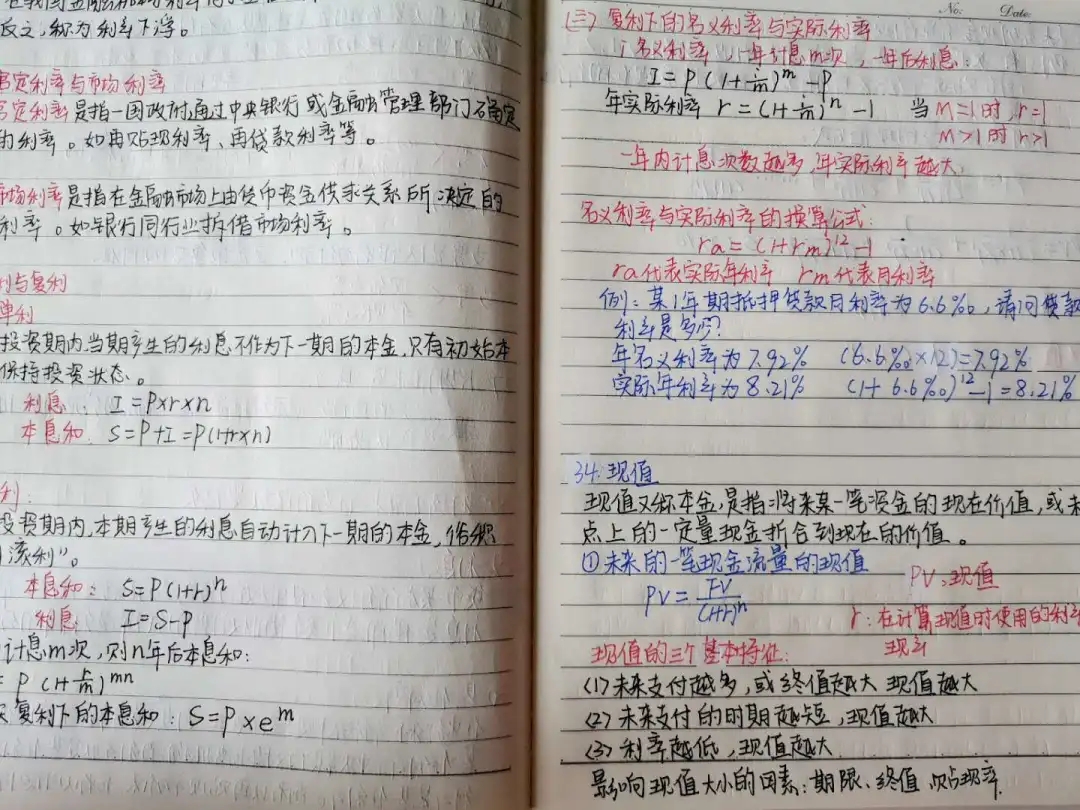 反之,称为利率下浮。
官定利率与市场利率
官定利率是指一国政府通过中央银行或金融管理部门确定
的利率。如再贴现利率、再贷款利率等。
市场利率是指在金融市场上由货币资金供求关系所决定的
利率。如银行同行业拆借市场利率。
利与复利
单利
投资期内,当期产生的利息不作为下一期的本金,只有初始本
保持投资状态。
利息: I=P×r×n
本息和: S=P+I=P(1+r×n)
利:
投资期内,本期产生的利息自动计入下一期的本金,
滚利”。
本息和: S=P(1+r)^n
利息 I=S-P
计息m次,则n年后本息和:
= P(1+r/m)^mn
复利下的本息和: S=P×e^m
No: Date:
(三)复利下的名义利率与实际利率
i名义利率,一年计息m次,一年后利息:
I=P(1+i/m)^m-P
年实际利率 r=(1+i/m)^n-1 当m=1时,r=1
m>1时 r>1
一年内计息次数越多,年实际利率越大.
名义利率与实际利率的换算公式:
ra=(1+rm)^12-1
ra代表实际年利率 rm代表月利率
例:某1年期抵押贷款月利率为6.6‰,请问贷款
利率是多少?
年名义利率为7.92% (6.6‰×12)=7.92%
实际年利率为8.21% (1+6.6‰)^12-1=8.21%
34.现值
现值又称本金,是指将来某一笔资金的现在价值,或未
点上的一定量现金折合到现在的价值。
①未来的一笔现金流量的现值
PV=FV/(1+r)^n PV:现值
r:在计算现值时使用的利率
现值的三个基本特征: 现率
(1)未来支付越多,或终值越大 现值越大
(2)未来支付的时期越短,现值越大
(3)利率越低,现值越大
影响现值大小的因素:期限、终值 贴现率.